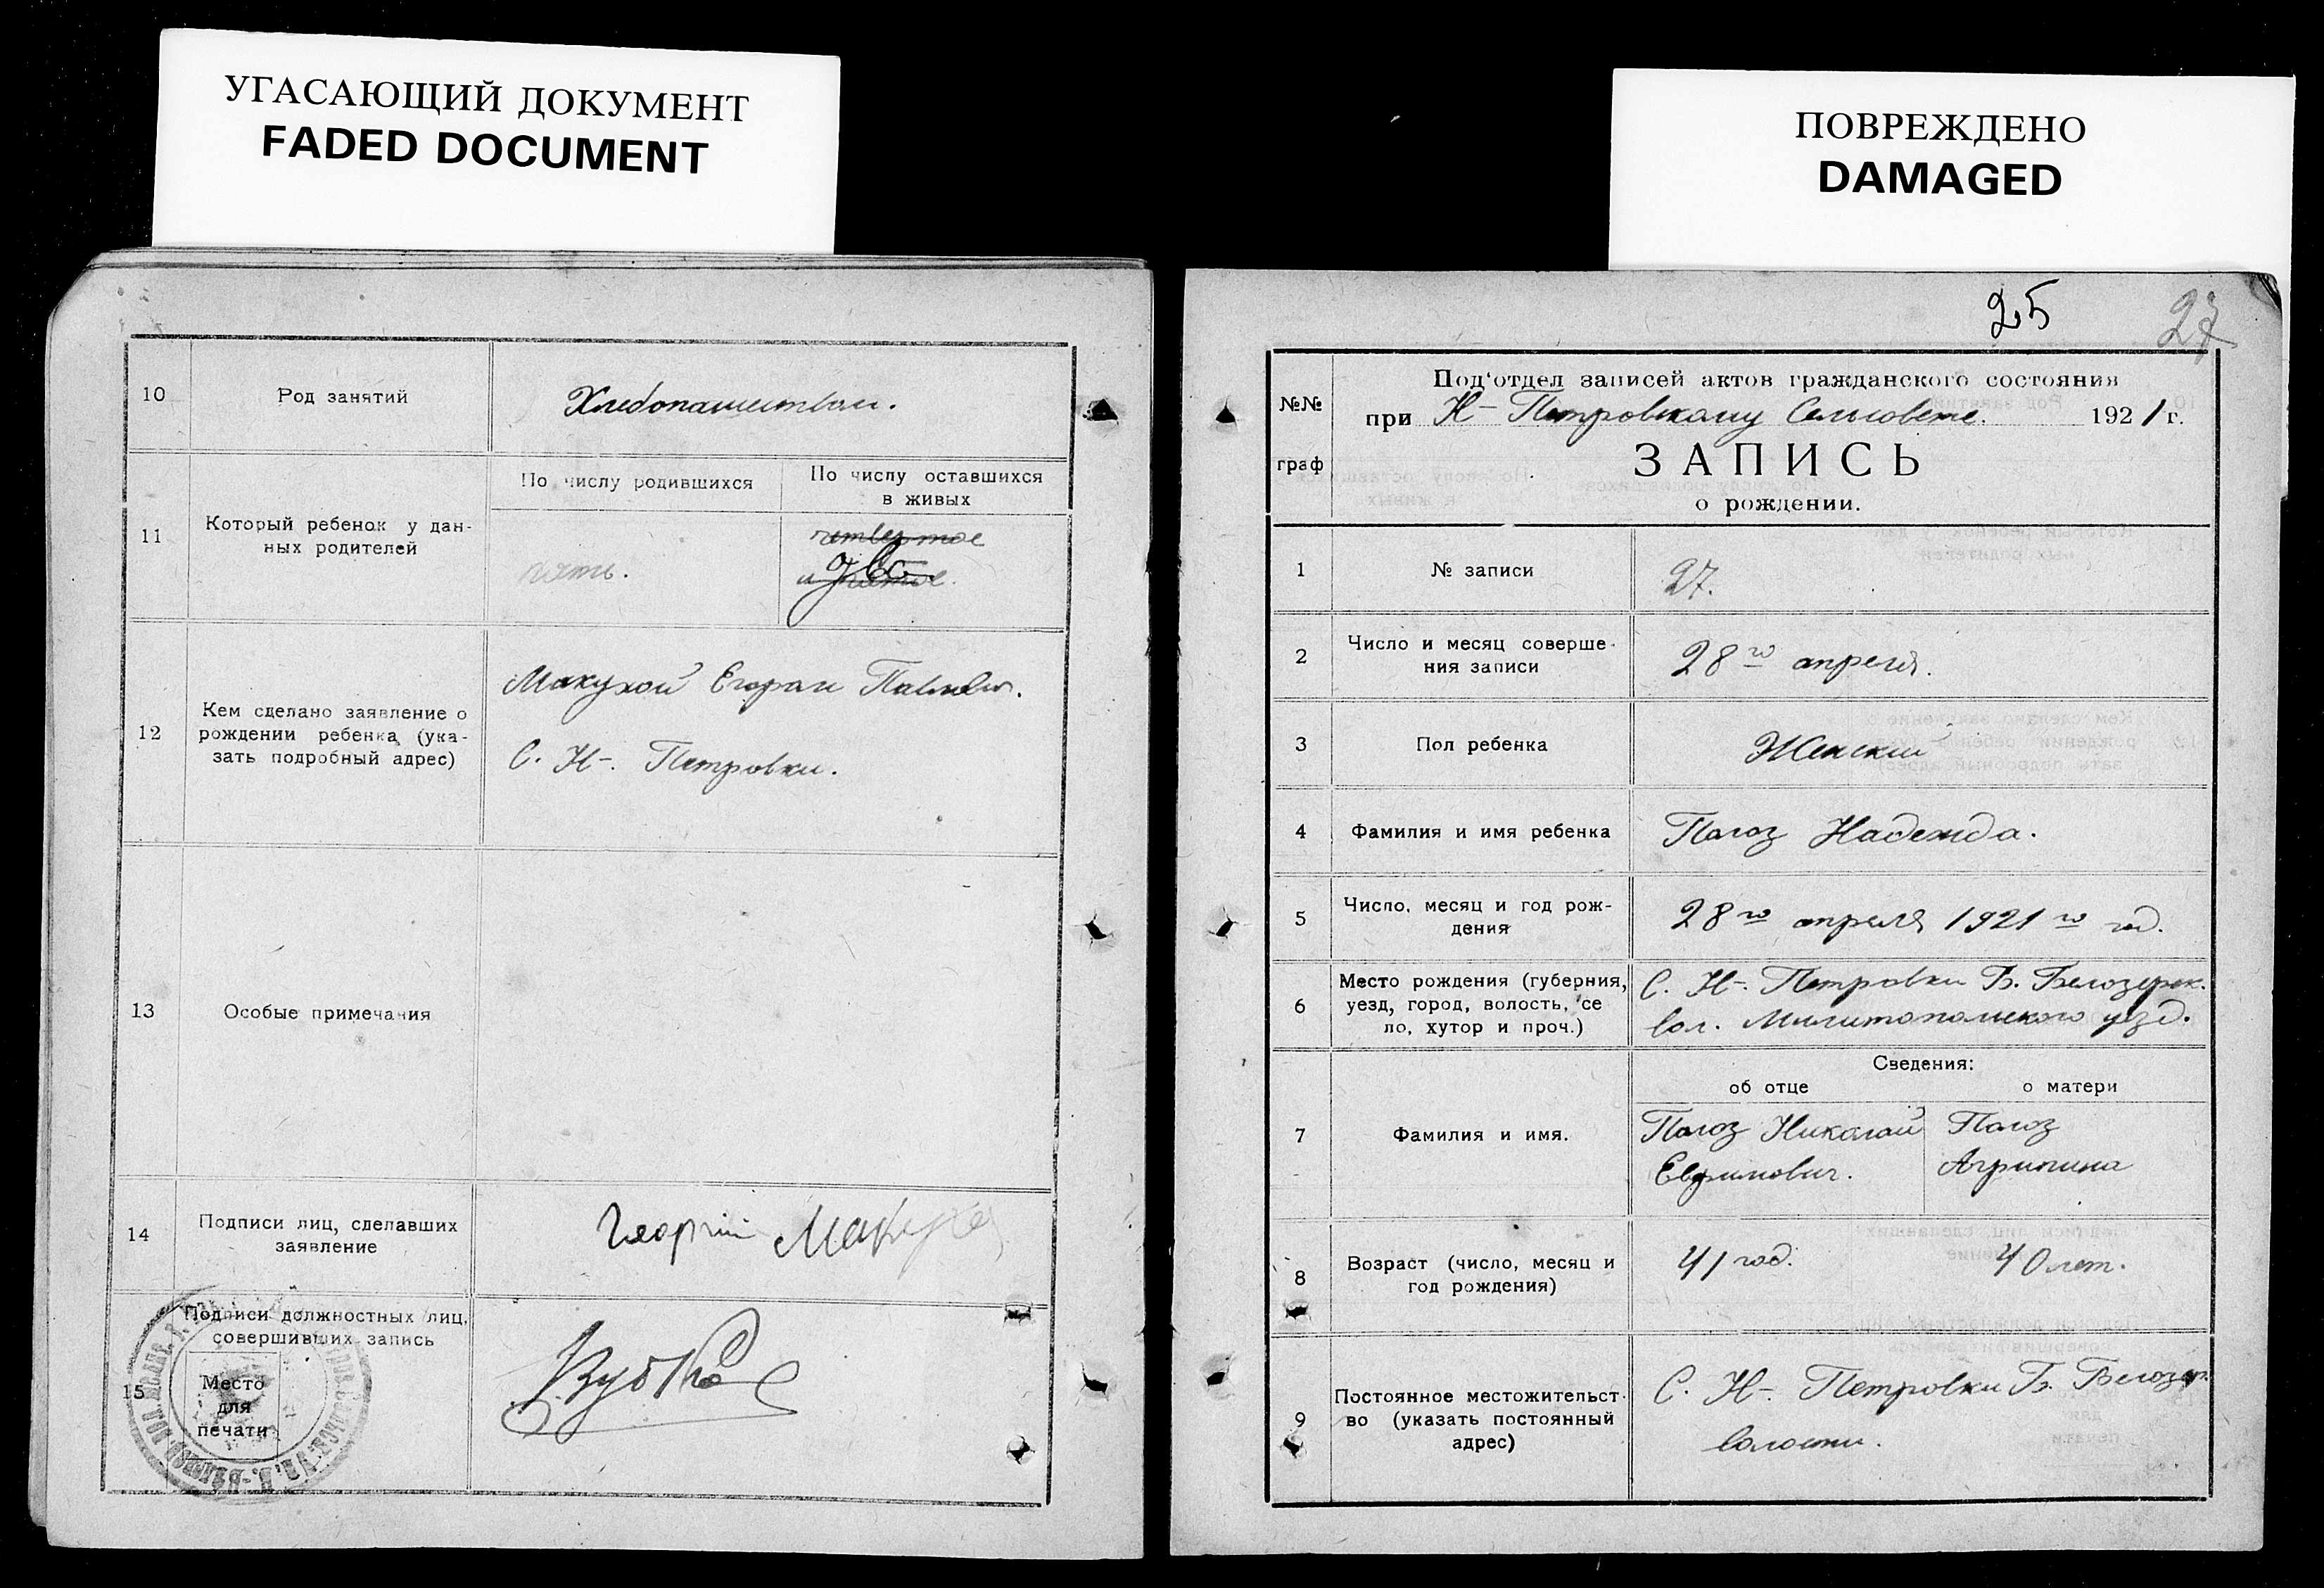 УГАСАЮЩИЙ ДОКУМЕНТ
FADED DOCUMENT
10
Род занятий
Хлебопашеством.
11
Который ребенок у дан-
ных родителей
По числу родившихся
По числу оставшихся
в живых
пять.
четвертое
два
12
Кем сделано заявление о
рождении ребенка (ука-
зать подробный адрес)
Макухой Егорам Павлович.
С. Н-. Петровки.
13
Особые примечания
14
Подписи лиц, сделавших
заявление
Георгий Макуха
15
Подписи должностных лиц,
совершивших запись
Место
для
печати
ПОВРЕЖДЕНО
DAMAGED
25
27
№№
граф
Под'отдел записей актов гражданского состояния
при Н-Петровскому Сельсовете. 1921 г.
ЗАПИСЬ
о рождении.
1
№ записи
27.
2
Число и месяц соверше-
ния записи
28го апреля.
3
Пол ребенка
Женский
4
Фамилия и имя ребенка
Палоз Надежда.
5
Число, месяц и год рож-
дения
28го апреля 1921го год.
6
Место рождения (губерния,
уезд, город, волость, се
ло, хутор и проч.)
С. Н-. Петровки Б. Белозерск.
вол. Милитопольского уезд.
Сведения:
об отце
о матери
7
Фамилия и имя.
Палоз Николай
Евфимович.
Палоз
Агрипина
8
Возраст (число, месяц и
год рождения)
41 год.
40 лет.
9
Постоянное местожительст-
во (указать постоянный
адрес)
С. Н-. Петровки Б. Белозер.
волости.